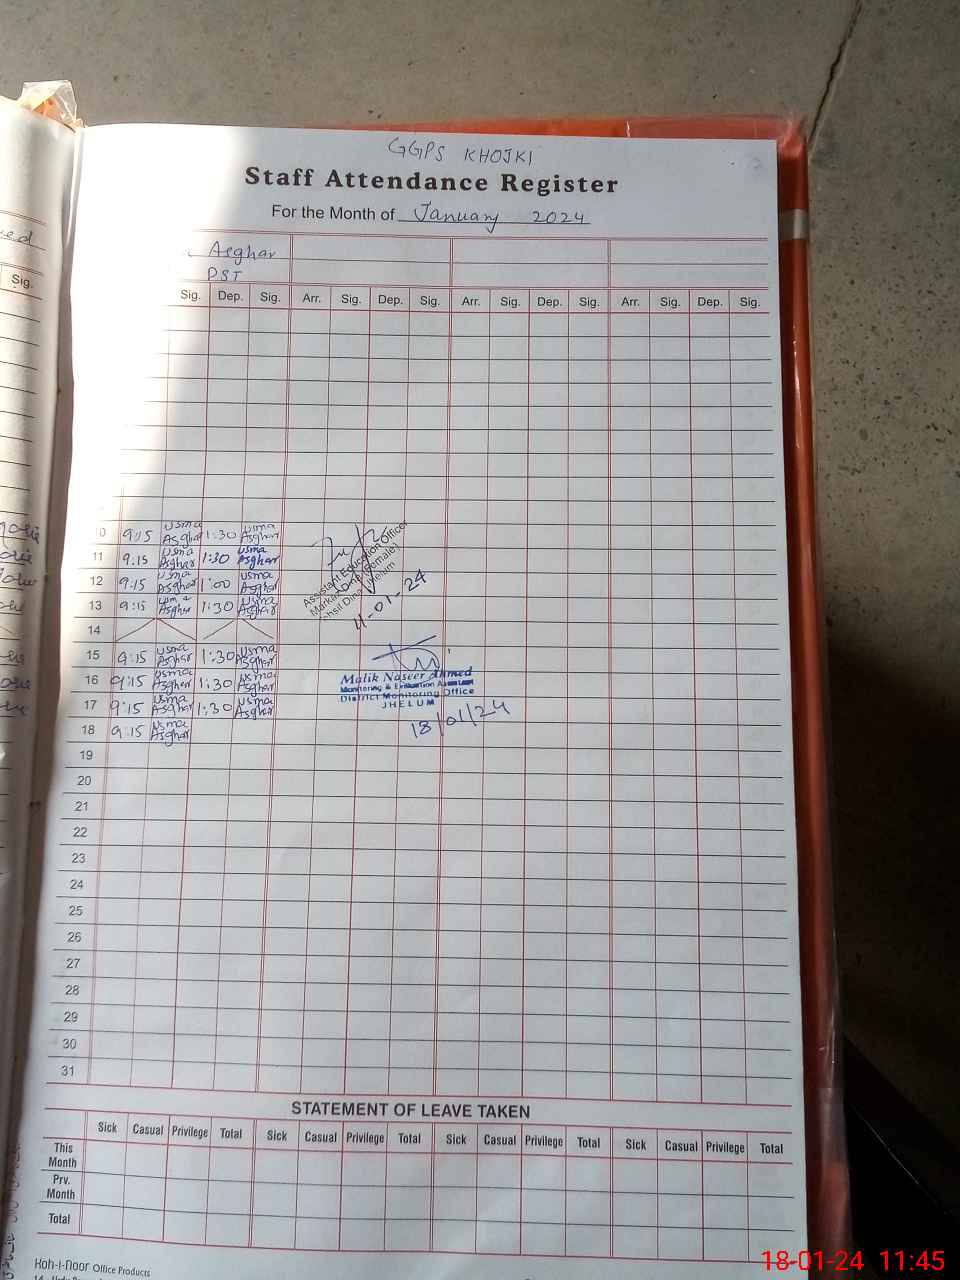 GGPS KHOJKI
Staff Attendance Register
For the Month of January 2024
Asghar
PST
Sig.
Sig. Dep. Sig. Arr. Sig. Dep. Sig. Arr. Sig. Dep. Sig. Arr. Sig. Dep. Sig.
10 9:15 Usma Asghar 1:30 Usma Asghar
11 9:15 Usma Asghar 1:30 Usma Asghar
12 9:15 Usma Asghar 1:00 Usma Asghar
13 9:15 Usma Asghar 1:30 Usma Asghar
Assistant Education Officer
11-01-24
14
15 9:15 Usma Asghar 1:30 Usma Asghar
16 9:15 Usma Asghar 1:30 Usma Asghar
17 9:15 Usma Asghar 1:30 Usma Asghar
18 9:15 Usma Asghar
Malik Naseer Ahmed
Monitoring & Evaluation Assistant
District Monitoring Office
JHELUM
18/01/24
19
20
21
22
23
24
25
26
27
28
29
30
31
STATEMENT OF LEAVE TAKEN
Sick Casual Privilege Total Sick Casual Privilege Total Sick Casual Privilege Total Sick Casual Privilege Total
This Month
Prv. Month
Total
Koh-I-Noor Office Products
18-01-24 11:45